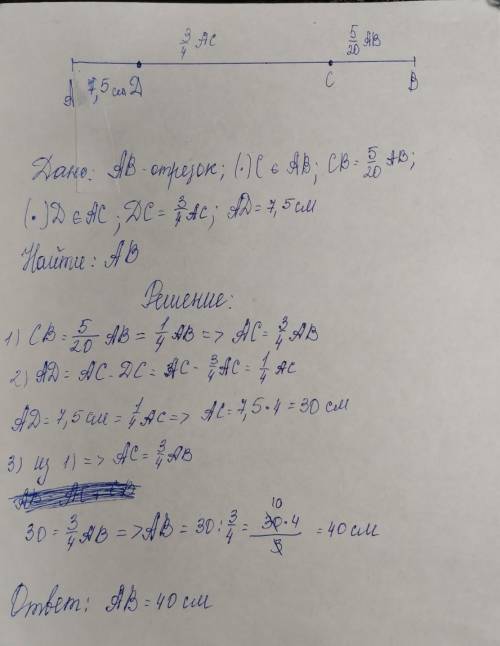 3/4 AC 5/20 AB
A 7,5 см D C B
Дано: AB - отрезок; (·)C ∈ AB; CB = 5/20 AB;
(·)D ∈ AC; DC = 3/4 AC; AD = 7,5 см
Найти: AB
Решение:
1) CB = 5/20 AB = 1/4 AB => AC = 3/4 AB
2) AD = AC - DC = AC - 3/4 AC = 1/4 AC
AD = 7,5 см = 1/4 AC => AC = 7,5 · 4 = 30 см
3) из 1) => AC = 3/4 AB
30 = 3/4 AB => AB = 30 : 3/4 = 10 30 · 4 / 3 = 40 см
Ответ: AB = 40 см